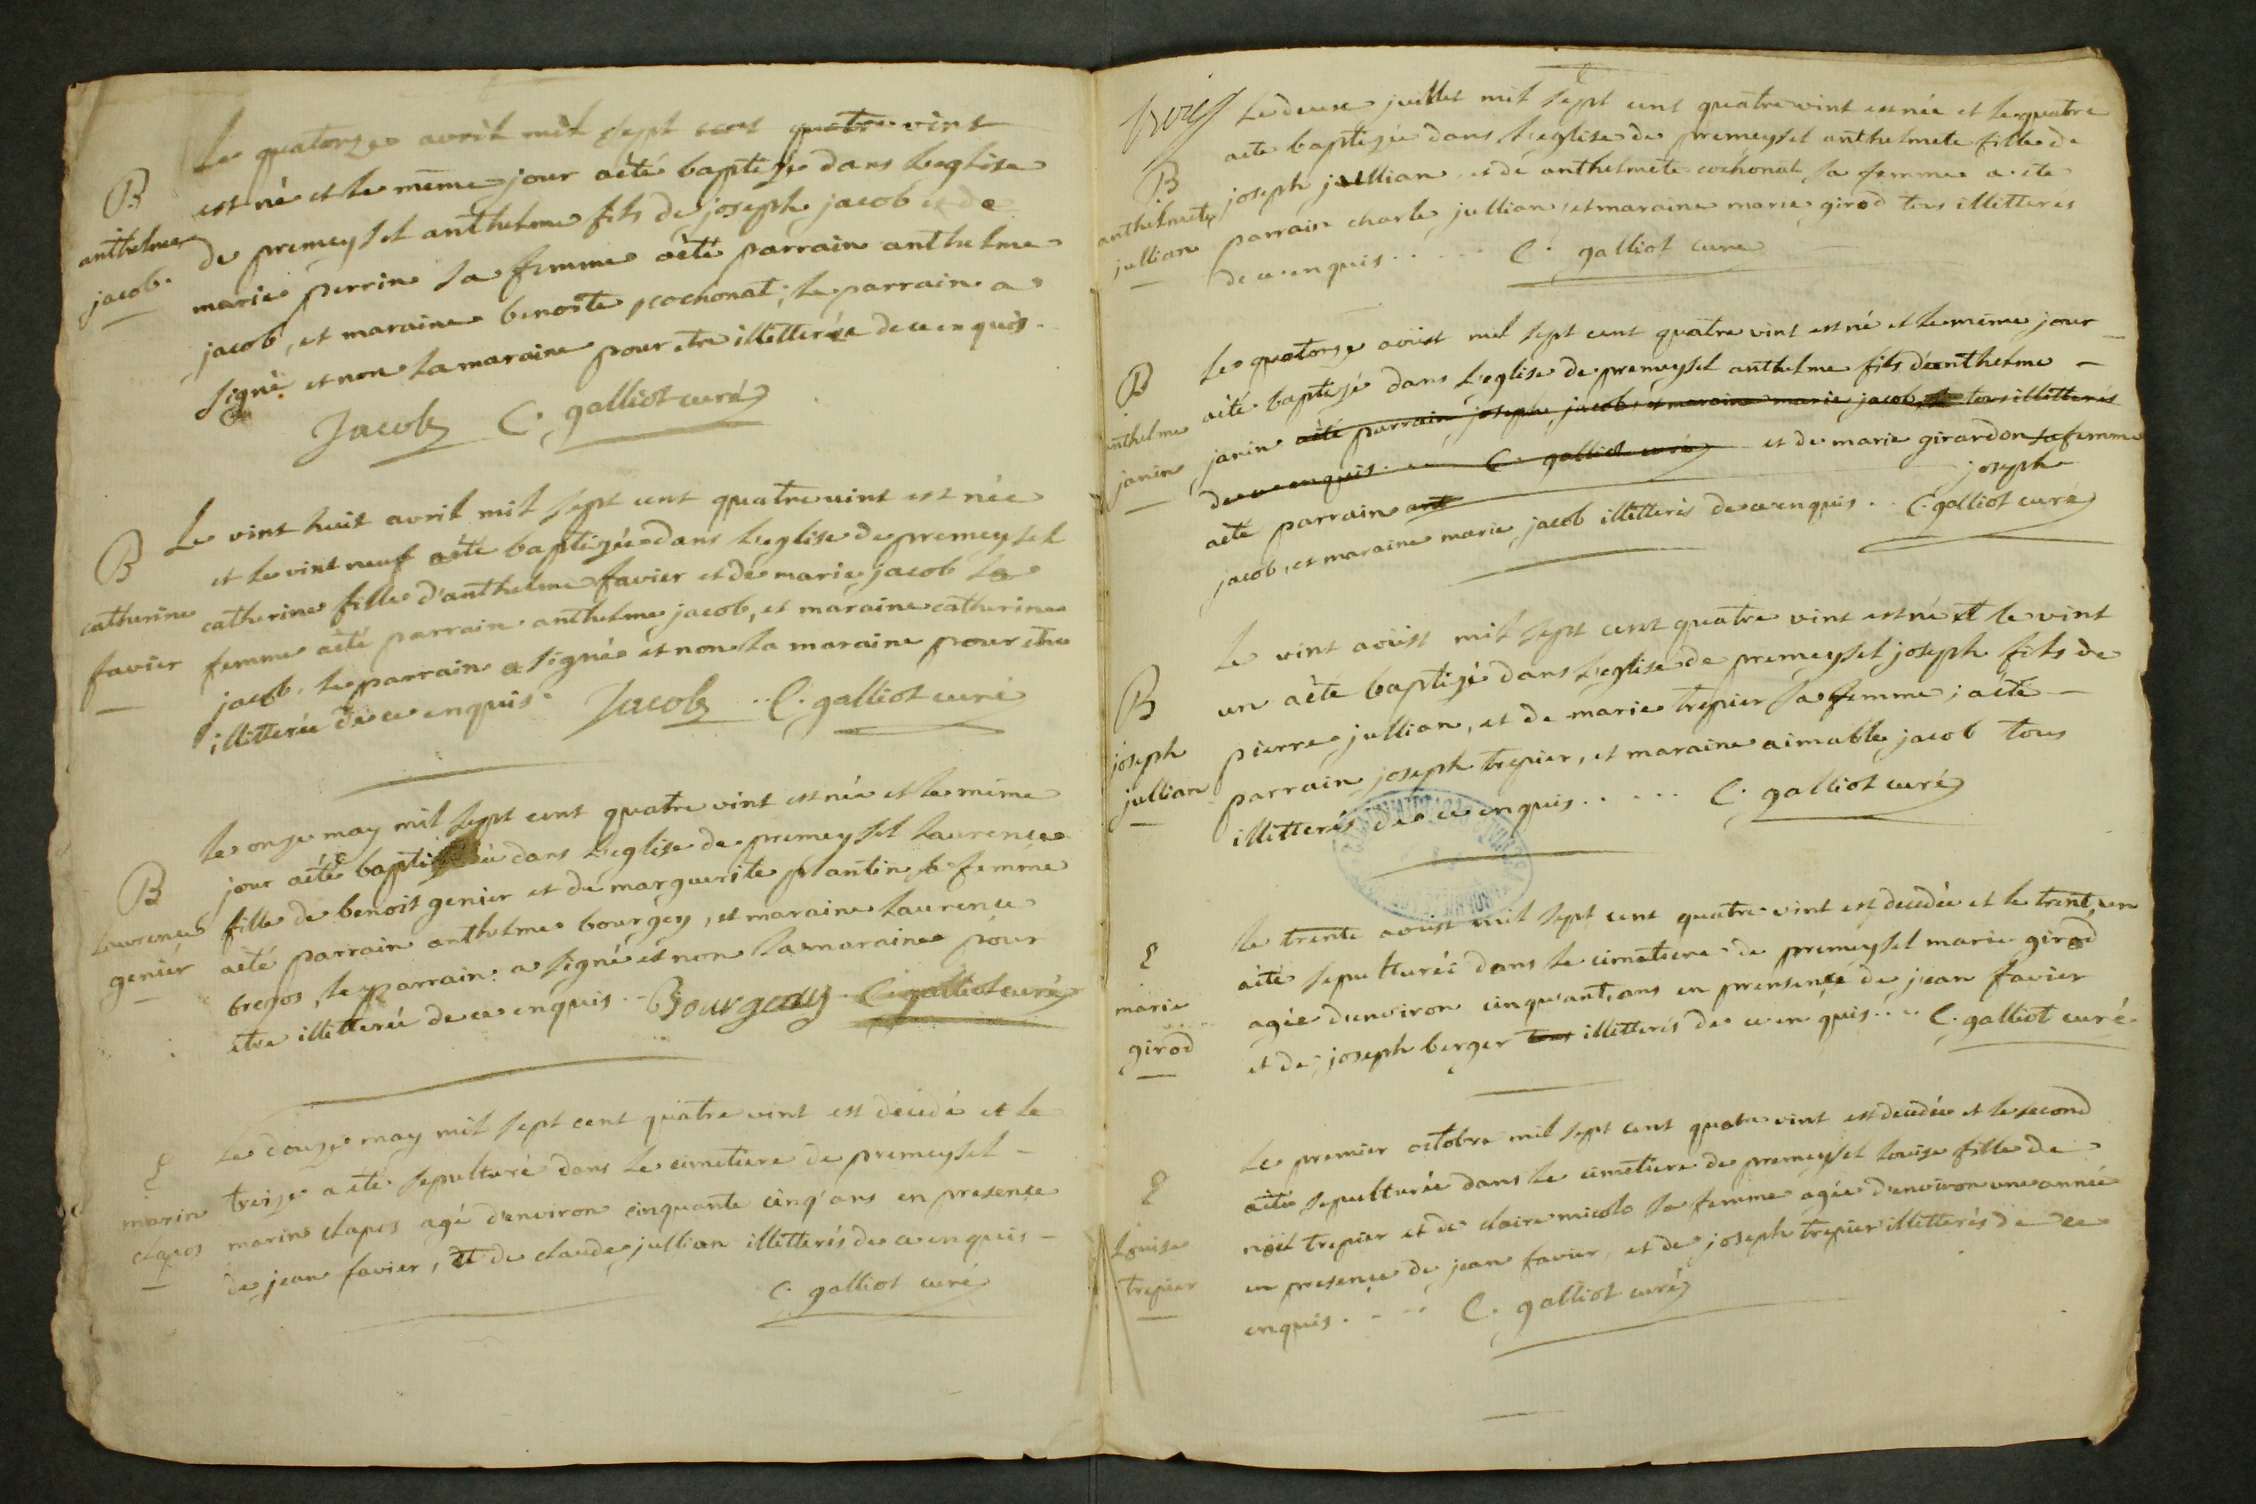 Le quatorze avril mil sept cent quatre vint
B est né et le même jour aété baptizé dans Leglise
anthelme de premeysel anthelme fils de joseph jacob et de
jacob. marie perrin sa femme aété parrain anthelme
jacob, et maraine benoite cochonat; le parrain a
signé et non la maraine pour etre illitterée de ce enquis.
Jacob C. galliot curé
Le vint huit avril mil sept cent quatre vint est née
B et le vint neuf aété baptizée dans Leglise de premeysel
catherine catherine fille d'anthelme favier et de marie jacob sa
favier femme aété parrain anthelme jacob, et maraine catherine
jacob, le parrain a signé et non la maraine pour etre
illitterée de ce enquis. Jacob .. C. galliot curé
Le onze may mil sept cent quatre vint est née et le même
B jour aété baptizée dans Leglise de premeysel Laurence
Laurence fille de benoit genier et de marguerite plantin sa femme
genier aété parrain anthelme bourgey, et maraine Laurence
bregos, le parrain a signé et non la maraine pour
etre illitterée de ce enquis .. Bourgeay C. galliot curé
Le douze may mil sept cent quatre vint est decedé et le
E treize a eté sepulturé dans le cimetiere de premeysel -
marin marin clapos agé denviron cinquante cinq'ans en presence
clapos de jean favier, et de claude jullian illitterés de ce enquis -
C. galliot curé
Le deuse juillet mil sept cent quatre vint est née et le quatre
B aete baptizée dans Leglise de premeysel anthelmete fille de
anthelmete joseph jullian et de anthelmete cochonat sa femme a ete
jullian parrain charle jullian, et maraine marie girod tous illitteres
de ce enquis ..... C. galliot cure
Le quatorze aoüst mil sept cent quatre vint est né et le même jour
B aété baptizé dans Leglise de premeysel anthelme fils d'anthelme -
anthelme janin aété parrain joseph jacob, et maraine marie jacob tous illitterés
janin de ce enquis. .. C. galliot curé et de marie girardon sa femme
aété parrain ant joseph
jacob, et maraine marie jacob illitterés de ce enquis .. C. galliot curé
Le vint aoüst mil sept cent quatre vint est né et le vint
B un aété baptizé dans Leglise de premeysel joseph fils de
joseph pierre jullian, et de marie trepier sa femme; aété -
jullian parrain joseph trepier, et maraine aimable jacob tous
illitterés de ce enquis ..... C. galliot curé
Le trente aoüst mil sept cent quatre vint est decedée et le trent'un
E aété sepulturée dans le cimetiere de premeysel marie girod
marie agée denviron cinquant'ans en prensence de jean favier
girod et de joseph berger tous illitterés de ce en quis .... C. galliot curé.
Le premier octobre mil sept cent quatre vint est decedée et le second
E aété sepulturée dans le cimetiere de premeysel louise fille de
Louise noël trepier et de claire micolo sa femme agée d'environ une année
trepier en presence de jean favier, et de joseph trepier illitterés de ce
enquis .... C. galliot curé